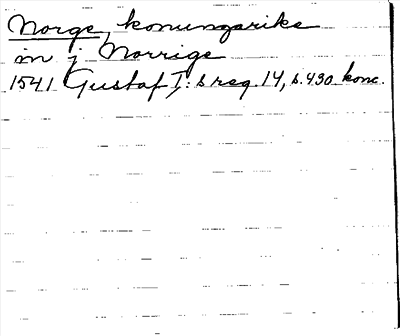 Norge, konungarike
in j Norrige
1541 Gustaf I:s reg. 14, s. 430. konc.